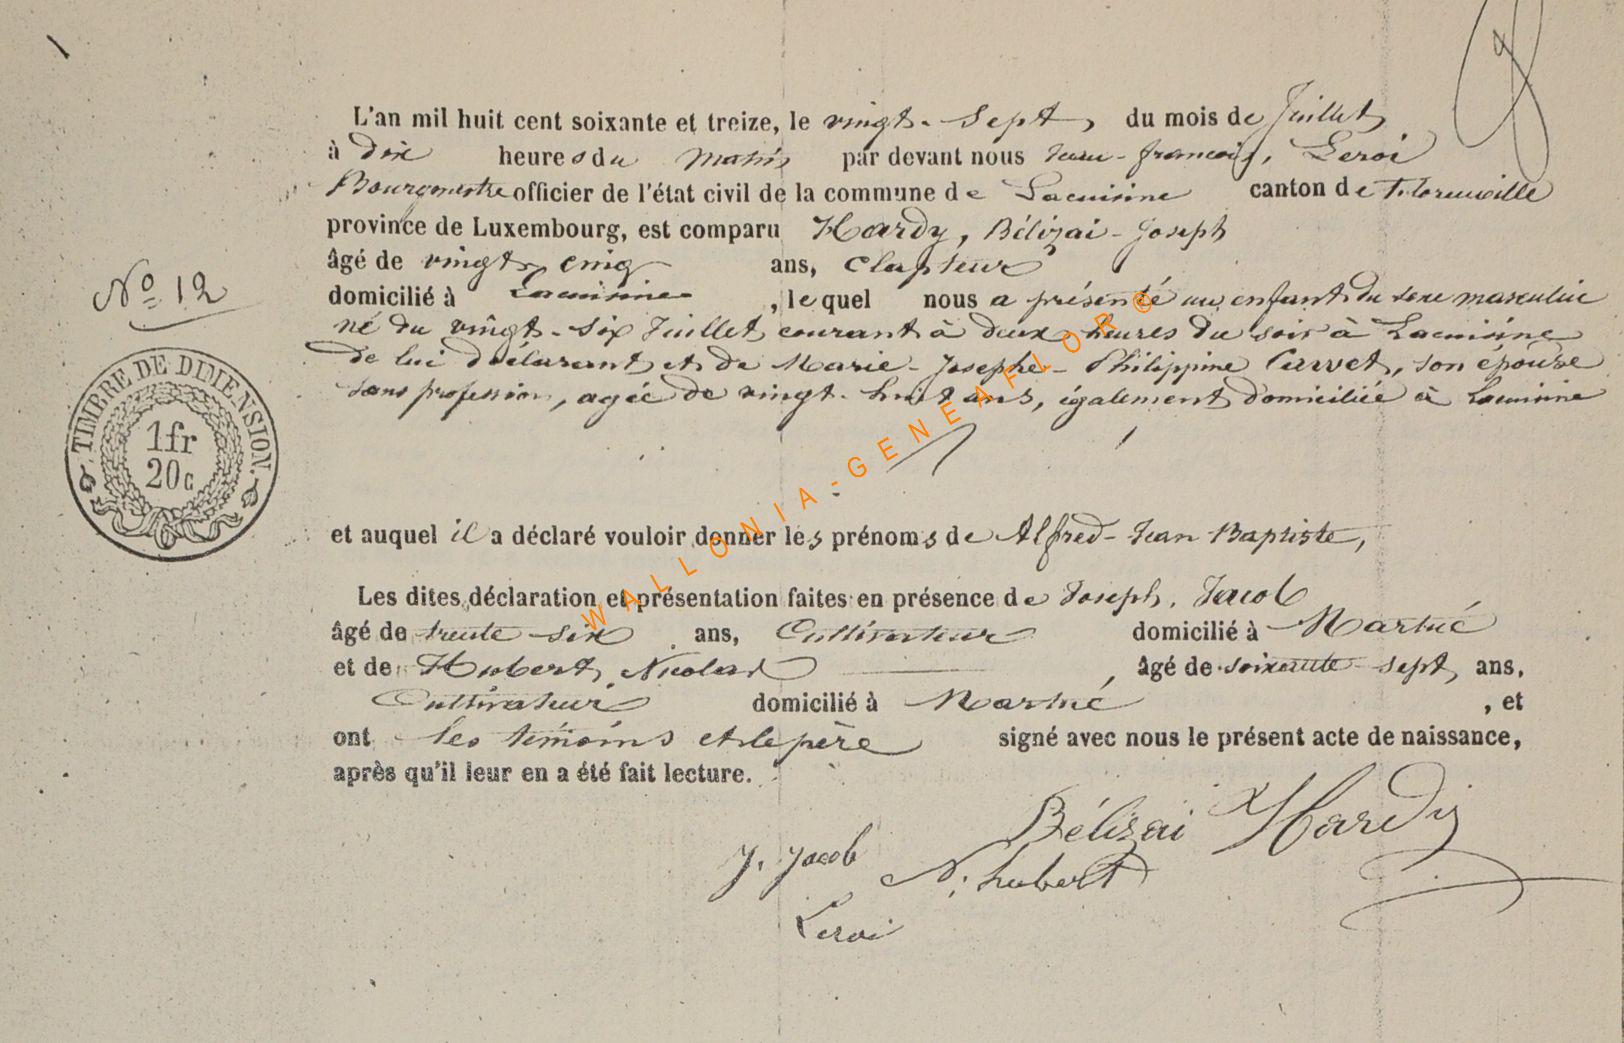 L'an mil huit cent soixante et treize, le vingt-sept du mois de Juillet
à dix heures du matin par devant nous Jean-françois, Leroi
Bourgmestre officier de l'état civil de la commune de Lacuisine canton de Florenville
province de Luxembourg, est comparu Hardy, Bélizai-Joseph
âgé de vingt cinq ans,
domicilié à Lacuisine, lequel nous a présenté un enfant du sexe masculin
né du vingt-six Juillet courant à deux heures du soir à Lacuisine
de lui déclarant et de Marie-Josephe-Philippine Curvet, son épouse
sans profession, agée de vingt-huit ans, également domiciliée à Lacuisine
No 12
TIMBRE DE DIMENSION.
1fr
20c
et auquel il a déclaré vouloir donner les prénoms de Alfred-Jean Baptiste,
Les dites déclaration et présentation faites en présence de Joseph, Jacob
âgé de trente-six ans, Cultivateur domicilié à Martué
et de Hubert, Nicolas, âgé de soixante-sept ans,
Cultivateur domicilié à Martué, et
ont les témoins et le père signé avec nous le présent acte de naissance,
après qu'il leur en a été fait lecture.
Bélizai Hardy
J. Jacob N. hubert
Leroi
WALLONIA-GENEAFLOR©